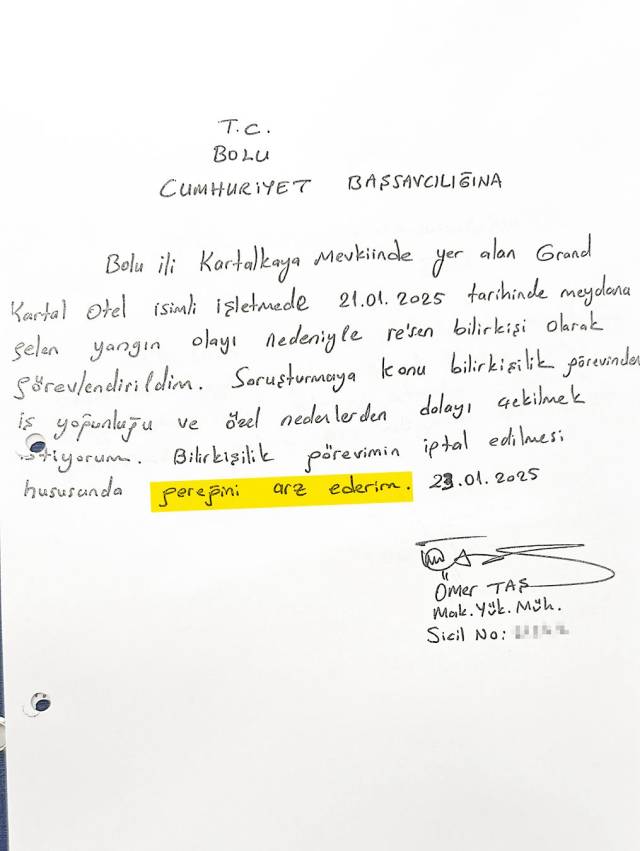 T.C.
BOLU
CUMHURİYET BAŞSAVCILIĞINA
Bolu ili Kartalkaya Mevkiinde yer alan Grand
Kartal Otel isimli işletmede 21.01.2025 tarihinde meydana
gelen yangın olayı nedeniyle re'sen bilirkişi olarak
görevlendirildim. Soruşturmaya konu bilirkişilik görevinden
iş yoğunluğu ve özel nedenlerden dolayı çekilmek
istiyorum. Bilirkişilik görevimin iptal edilmesi
hususunda gereğini arz ederim. 23.01.2025
Ömer TAŞ
Mak. Yük. Müh.
Sicil No: